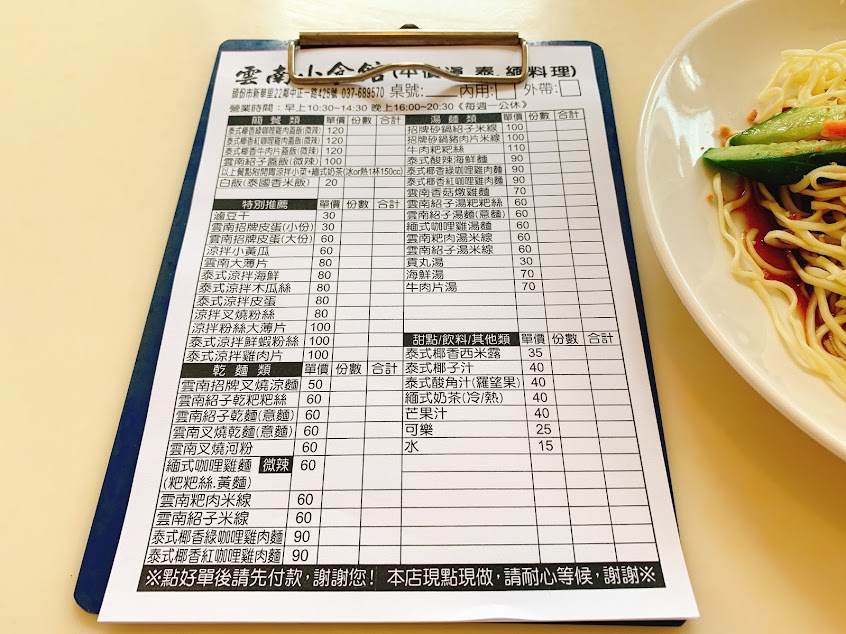 雲南小食館(平價滇.泰.緬料理)
頭份市新華里22鄰中正一路425號 037-689570 桌號: 內用: 外帶:
營業時間：早上10:30~14:30 晚上16:00~20:30《每週一公休》
簡餐類 單價 份數 合計
泰式椰香綠咖哩雞肉蓋飯(微辣) 120
泰式椰香紅咖哩雞肉蓋飯(微辣) 120
泰式椰香牛肉片蓋飯(微辣) 120
雲南紹子蓋飯(微辣) 100
以上餐點附開胃涼拌小菜+緬式奶茶(冰or熱1杯150cc)
白飯(泰國香米飯) 20
特別推薦 單價 份數 合計
滷豆干 30
雲南招牌皮蛋(小份) 30
雲南招牌皮蛋(大份) 60
涼拌小黃瓜 60
雲南大薄片 80
泰式涼拌海鮮 80
泰式涼拌木瓜絲 80
泰式涼拌皮蛋 80
涼拌叉燒粉絲 80
涼拌粉絲大薄片 100
泰式涼拌鮮蝦粉絲 100
泰式涼拌雞肉片 100
乾麵類 單價 份數 合計
雲南招牌叉燒涼麵 50
雲南紹子乾粑粑絲 60
雲南紹子乾麵(意麵) 60
雲南叉燒乾麵(意麵) 60
雲南叉燒河粉 60
緬式咖哩雞麵 微辣 60
(粑粑絲.黃麵)
雲南粑肉米線 60
雲南紹子米線 60
泰式椰香綠咖哩雞肉麵 90
泰式椰香紅咖哩雞肉麵 90
湯麵類 單價 份數 合計
招牌砂鍋紹子米線 100
招牌砂鍋豬肉片米線 100
牛肉粑粑絲 110
泰式酸辣海鮮麵 90
泰式椰香綠咖哩雞肉麵 90
泰式椰香紅咖哩雞肉麵 90
雲南香菇燉雞麵 70
雲南紹子湯粑粑絲 60
雲南紹子湯麵(意麵) 60
緬式咖哩雞湯麵 60
雲南粑肉湯米線 60
雲南紹子湯米線 60
貢丸湯 30
海鮮湯 70
牛肉片湯 70
甜點/飲料/其他類 單價 份數 合計
泰式椰香西米露 35
泰式椰子汁 40
泰式酸角汁(羅望果) 40
緬式奶茶(冷/熱) 40
芒果汁 40
可樂 25
水 15
※點好單後請先付款，謝謝您! 本店現點現做，請耐心等候，謝謝※